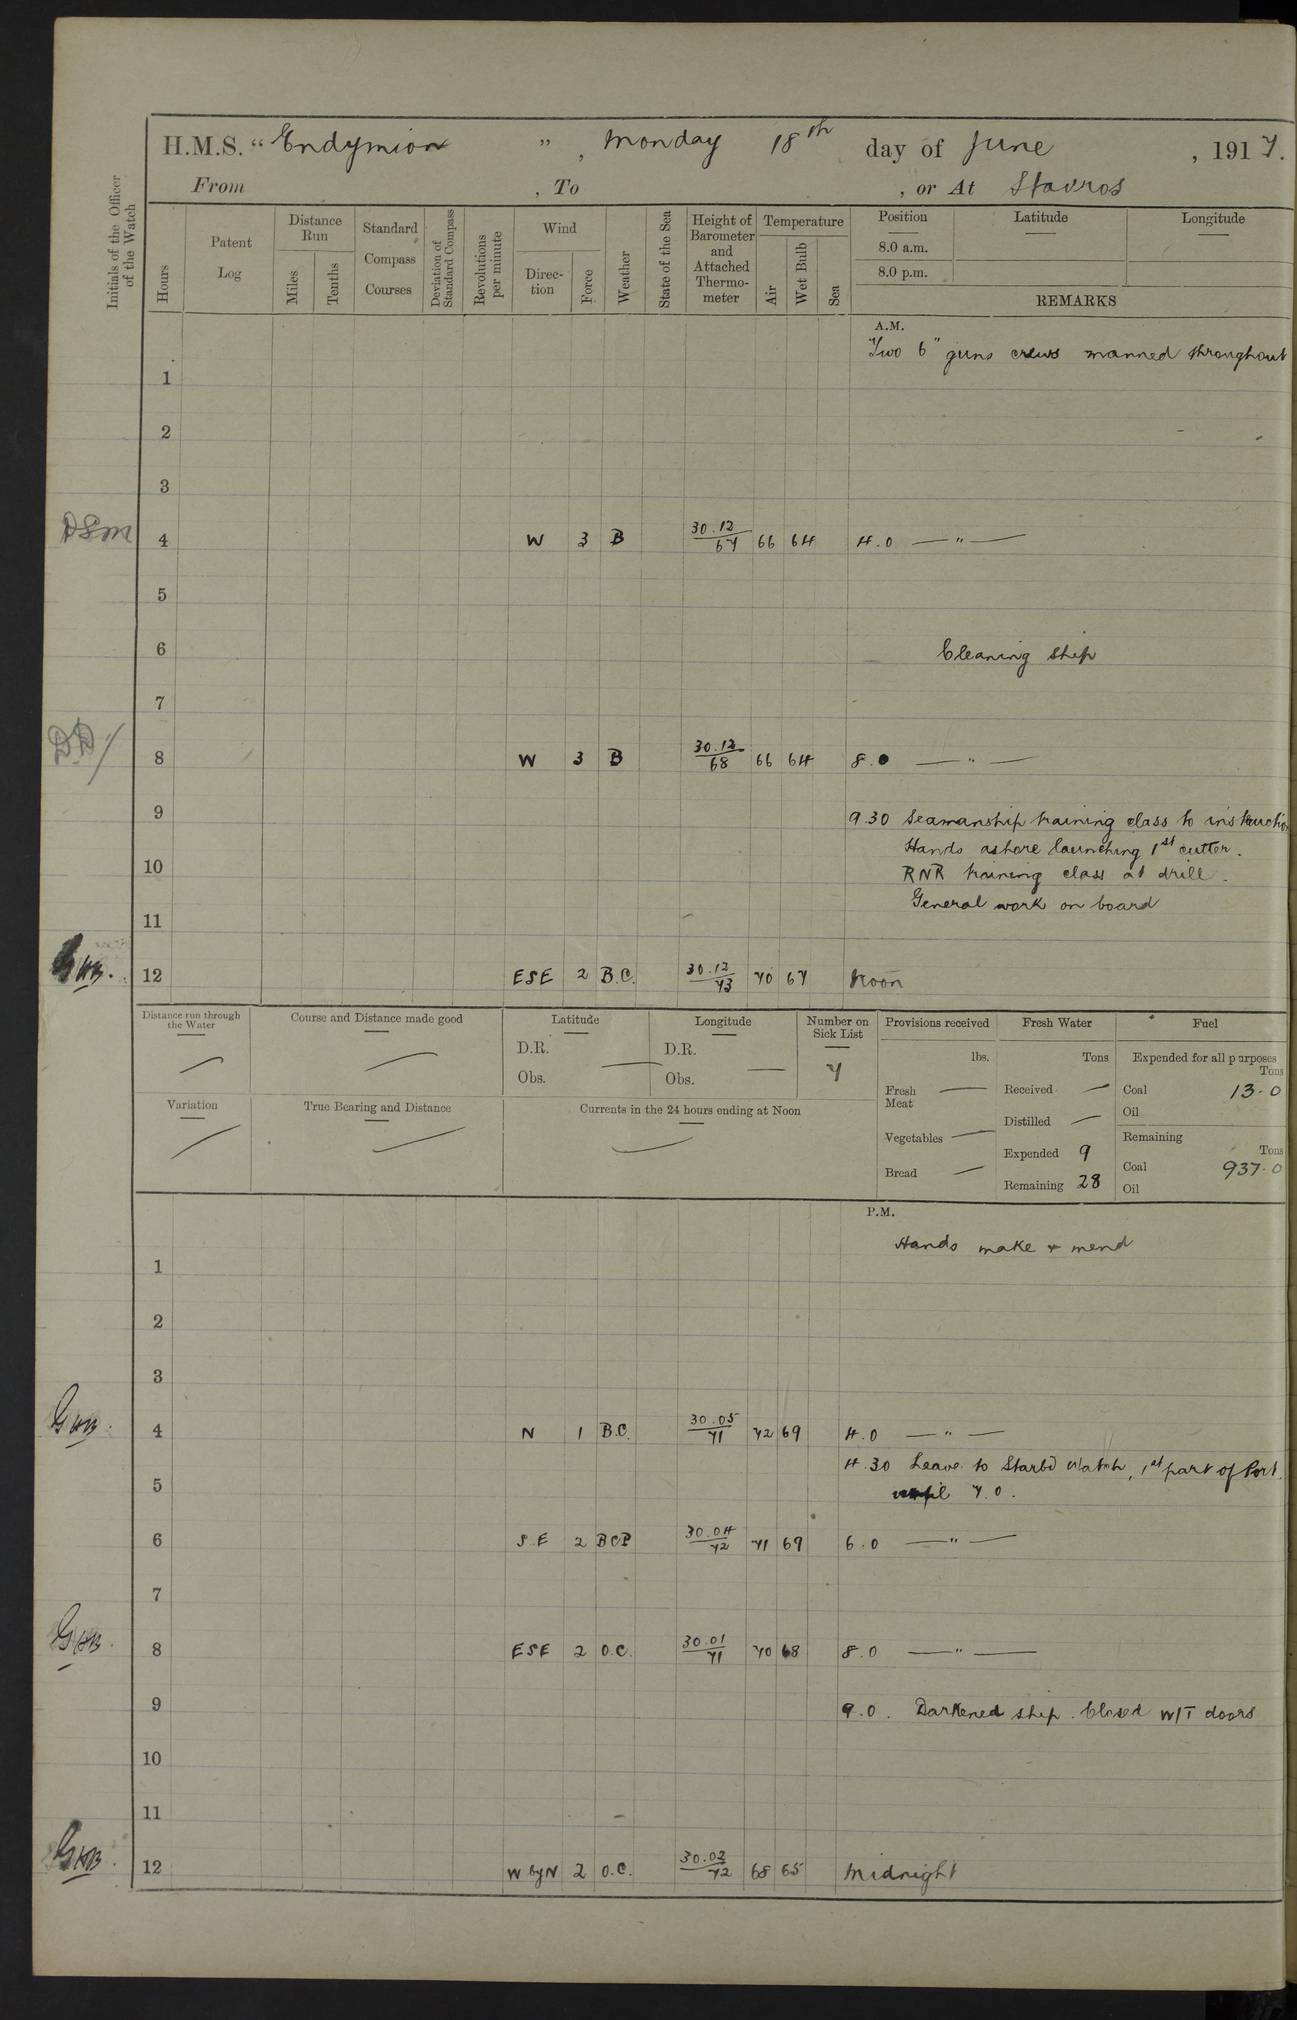 H.M.S. “ Endymion ” , Monday 18th day of June , 1917.
From , To , or At Stavros
Initials of the Officer of the Watch
Hours
Patent Log
Distance Run
Miles Tenths
Standard Compass Courses
Deviation of Standard Compass
Revolutions per minute
Wind
Direc-tion Force
Weather
State of the Sea
Height of Barometer and Attached Thermo-meter
Temperature
Air Wet Bulb Sea
Position Latitude Longitude
8.0 a.m.
8.0 p.m.
REMARKS
A.M.
Two 6" guns crews manned throughout
1
2
3
DSM 4 W 3 B 30.12/67 66 64 4.0 — " —
5
6 Cleaning ship
7
DD 8 W 3 B 30.12/68 66 64 8.0 — " —
9 9.30 Seamanship training class to instruction
Hands ashore launching 1st cutter.
10 RNR training class at drill.
General work on board
11
GHB. 12 ESE 2 B.C. 30.12/73 70 67 Noon
Distance run through the Water —
Course and Distance made good —
Latitude D.R. — Obs.
Longitude D.R. — Obs.
Number on Sick List 7
Provisions received lbs.
Fresh Meat —
Vegetables —
Bread —
Fresh Water Tons
Received —
Distilled —
Expended 9
Remaining 28
Fuel
Expended for all purposes Tons
Coal 13.0
Oil
Remaining Tons
Coal 937.0
Oil
Variation —
True Bearing and Distance —
Currents in the 24 hours ending at Noon —
P.M.
Hands make & mend
1
2
3
GHB 4 N 1 B.C. 30.05/71 72 69 4.0 — " —
4.30 Leave to Starbd Watch, 1st part of Port
5 until 7.0.
6 S.E 2 BCP 30.04/72 71 69 6.0 — " —
7
GHB. 8 ESE 2 O.C. 30.01/71 70 68 8.0 — " —
9 9.0. Darkened ship. Closed W/T doors
10
11
GHB. 12 W by N 2 O.C. 30.02/72 68 65 Midnight